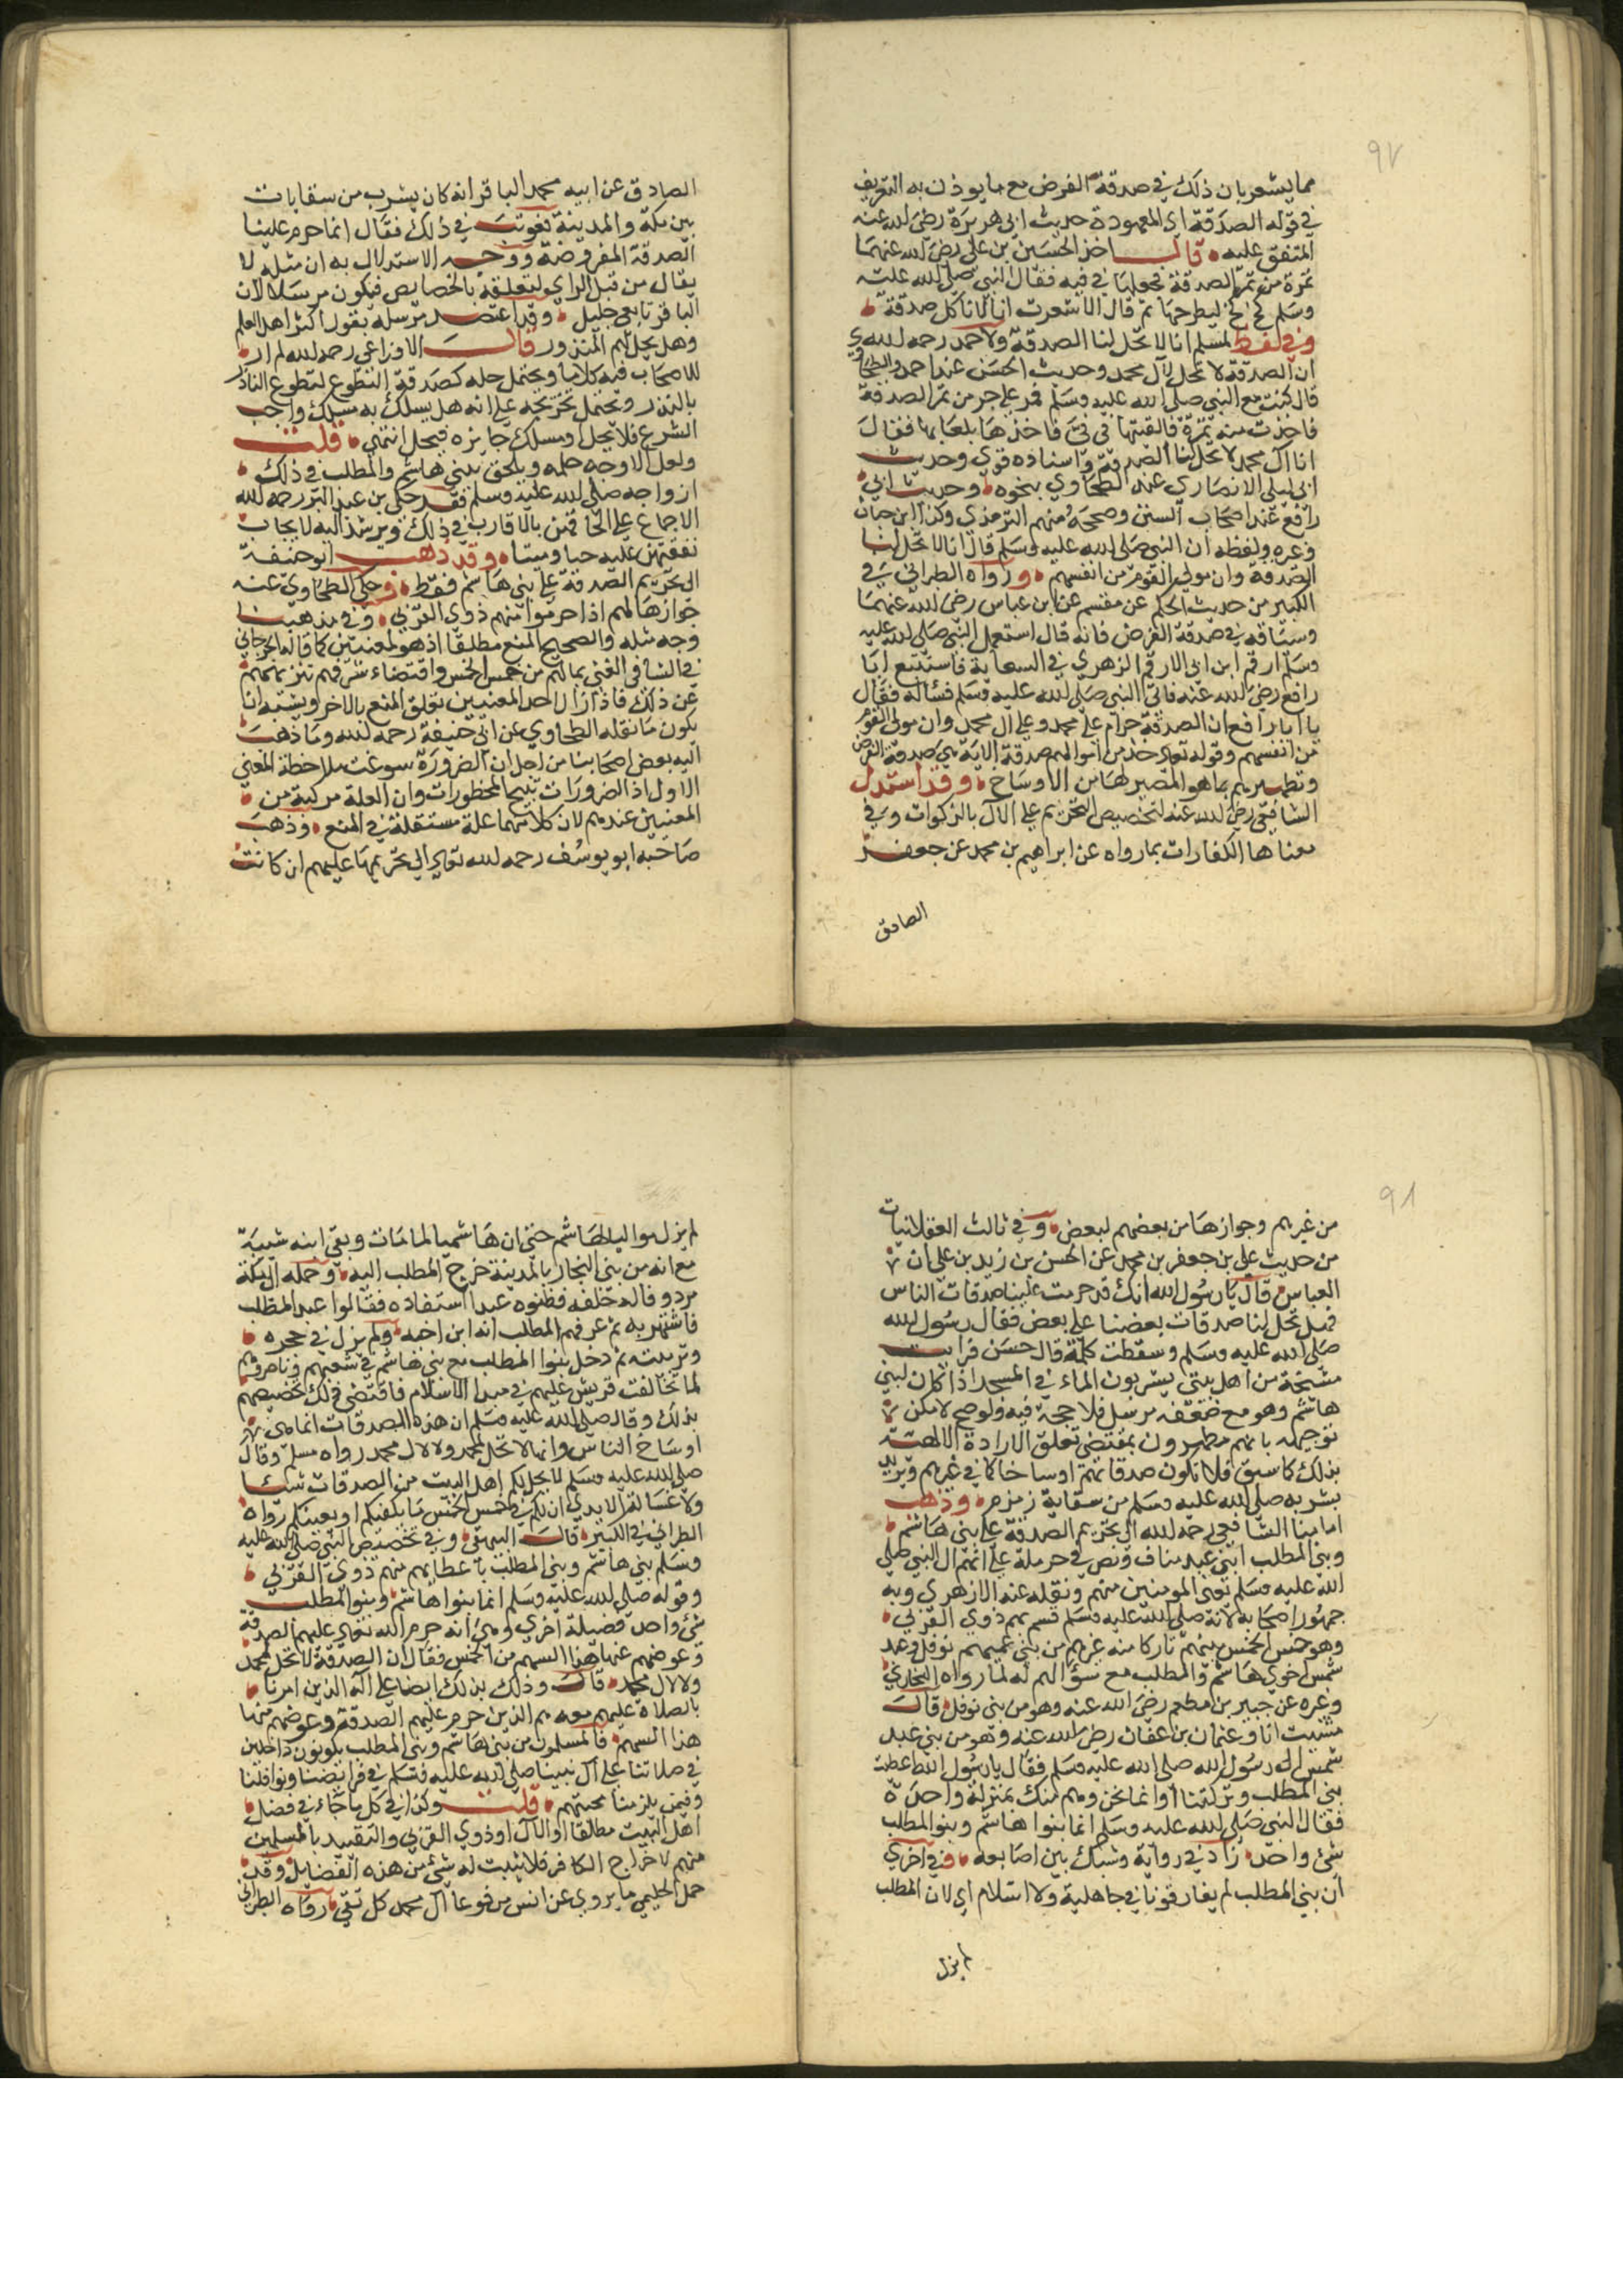 ٩٧
مما يشعر بان ذلك في صدقة الفرض مع ما يوذن به التعريف
في قوله الصدقة اي المعهودة حديث ابي هريرة رضي الله عنه
المتفق عليه قال اخذ الحسين بن علي رضي الله عنهما
تمرة من تمر الصدقة فجعلها في فيه فقال النبي صلى الله عليه
وسلم كخ كخ ليطرحها ثم قال الا شعرت انا لا ناكل صدقة
وفي لفظ لمسلم انا لا تحل لنا الصدقة ولاحمد رحمه الله
ان الصدقة لا تحل لآل محمد وحديث الحسن عند احمد والطحاوي
قال كنت مع النبي صلى الله عليه وسلم فمر على جرين من تمر الصدقة
فاخذت منه تمرة فالقيتها في فيّ فاخذها بلعابها فقال
انا آل محمد لا تحل لنا الصدقة واسناده قوي وحديث
ابي ليلى الانصاري عند الطحاوي بنحوه وحديث ابي
رافع عند اصحاب السنن وصححه منهم الترمذي وكذا ابن حبان
وغيره ولفظه ان النبي صلى الله عليه وسلم قال انا لا تحل لنا
الصدقة وان مولى القوم من انفسهم ورواه الطبراني في
الكبير من حديث الحكم عن مقسم عن ابن عباس رضي الله عنهما
وسياقه في صدقة الفرض فانه قال استعمل النبي صلى الله عليه
وسلم ارقم ابن ابي الارقم الزهري في السعاية فاستتبع ابا
رافع رضي الله عنه فاتى النبي صلى الله عليه وسلم فسأله فقال
يا ابا رافع ان الصدقة حرام على محمد وعلى آل محمد وان مولى القوم
من انفسهم وقوله تعالى خذ من اموالهم صدقة الاية هي صدقة الفرض
وتطهيرهم بها هو المصير لها من الاوساخ وقد استدل
الشافعي رضي الله عنه لتخصيص التحريم على الآل بالزكوات وفي
معناها الكفارات بما رواه عن ابراهيم بن محمد عن جعفر
الصادق
الصادق عن ابيه محمد الباقر انه كان يشرب من سقايات
بين مكة والمدينة فعوتب في ذلك فقال انما حرم علينا
الصدقة المفروضة ووجه الاستدلال به ان مثله لا
يقال من قبل الراي لتعلقه بالخصايص فيكون مرسلا لان
الباقر تابعي جليل وقد اعتضد مرسله بقول اكثر اهل العلم
وهل يحل لهم المنذور قال الاوزاعي رحمه الله لم ار
للاصحاب فيه كلاما ويحتمل حله كصدقة التطوع لتطوع الناذر
بالنذر ويحتمل تخريجه على انه هل يسلك به مسلك واجب
الشرع فلا يحل او مسلك جايزه فيحل انتهى قلت
ولعل الاوجه حله ويلحق ببني هاشم والمطلب في ذلك
ازواجه صلى الله عليه وسلم فقد حكى بن عبد البر رحمه الله
الاجماع على الحاقهن بالاقارب في ذلك ويرشد اليه لايجاب
نفقتهن عليه حيا وميتا وقد ذهب ابو حنيفة
الى تحريم الصدقة على بني هاشم فقط وحكى الطحاوي عنه
جوازها لهم اذا حرموا سهم ذوي القربى وفي مذهبنا
وجه مثله والصحيح المنع مطلقا اذ هو لمعنيين كما قاله الجرجاني
في الشافي الغني بمالهم من خمس الخمس واقتضاء شرفهم تنزيههم
عن ذلك فاذا زال احد المعنيين تعلق المنع بالاخر ويشبه ان
يكون ما نقله الطحاوي عن ابي حنيفة رحمه الله وما ذهب
اليه بعض اصحابنا من اجل ان الضرورة سوغت ملاحظة المعنى
الاول اذ الضرورات تبيح المحظورات وان العلة مركبة من
المعنيين عندهم لان كلا منهما علة مستقلة في المنع وذهب
صاحبه ابو يوسف رحمه الله تعالى الى تحريمها عليهم ان كانت
٩٨
من غيرهم وجوازها من بعضهم لبعض وفي ثالث العقلانيات
من حديث علي بن جعفر بن محمد عن الحسن بن زيد بن علي ان
العباس قال يا رسول الله انك قد حرمت علينا صدقات الناس
فهل تحل لنا صدقات بعضنا على بعض فقال رسول الله
صلى الله عليه وسلم وسقطت كلمة قال حسن فرايت
مشيخة من اهل بيتي يشربون الماء في المسجد اذا كان لبني
هاشم وهو مع ضعفه مرسل فلا حجة فيه ولو صح لامكن
توجيهه بانهم مطهرون بمقتضى تعلق الارادة الالهية
بذلك كما سبق فلا تكون صدقاتهم اوساخا كما في غيرهم ويريد
بشربه صلى الله عليه وسلم من سقاية زمزم وذهب
امامنا الشافعي رحمه الله الى تحريم الصدقة على بني هاشم
وبني المطلب ابني عبد مناف ونص في حرملة على انهم آل النبي صلى
الله عليه وسلم نعني المومنين منهم ونقله عنه الازهري وبه
جمهور اصحابه لانه صلى الله عليه وسلم قسم بهم ذوي القربى
وهو خمس الخمس بينهم تاركا منه غيرهم من بني عميهم نوفل وعبد
شمس اخوي هاشم والمطلب مع سؤالهم له لما رواه البخاري
وغيره عن جبير بن مطعم رضي الله عنه وهو من بني نوفل قال
مشيت انا وعثمان بن عفان رضي الله عنه وهو من بني عبد
شمس الى رسول الله صلى الله عليه وسلم فقال يا رسول الله اعطيت
بني المطلب وتركتنا وانما نحن وهم منك بمنزلة واحدة
فقال النبي صلى الله عليه وسلم انما بنوا هاشم وبنو المطلب
شئ واحد زاد في رواية وشبك بين اصابعه وفي اخرى
ان بني المطلب لم يفارقونا في جاهلية ولا اسلام اي لان المطلب
لم يزل
لم يزل مواليا لهاشم حتى ان هاشميا لما مات وبقي ابنه شيبة
مع امه من بني النجار بالمدينة خرج المطلب اليه وحمله الى مكة
مردوفا له خلفه فظنوه عبدا استفاده فقالوا عبد المطلب
فاشتهر به ثم عرفهم المطلب انه ابن اخيه ولم يزل في حجره
وتربيته ثم دخل بنوا المطلب مع بني هاشم في شعبهم وناصروهم
لما تخالفت قريش عليهم في مبدا الاسلام فاقتضى ذلك تخصيصهم
بذلك وقال صلى الله عليه وسلم ان هذه الصدقات انما هي
اوساخ الناس وانها لا تحل لمحمد ولا لآل محمد رواه مسلم وقال
صلى الله عليه وسلم لا يحل لكم اهل البيت من الصدقات شيئا
ولا غسالة الايدي ان لكم في خمس الخمس ما يكفيكم او يغنيكم رواه
الطبراني في الكبير قال البيهقي وفي تخصيص النبي صلى الله عليه
وسلم بني هاشم وبني المطلب باعطايهم سهم ذوي القربى
وقوله صلى الله عليه وسلم انما بنوا هاشم وبنوا المطلب
شئ واحد فضيلة اخرى وهي انه حرم الله تعالى عليهم الصدقة
وعوضهم عنها هذا السهم من الخمس فقال ان الصدقة لا تحل لمحمد
ولا لآل محمد قال وذلك يدلك ايضا على آله الذين امرنا
بالصلاة عليهم معه هم الذين حرم عليهم الصدقة وعوضهم منها
هذا السهم فالمسلمون من بني هاشم وبني المطلب يكونون داخلين
في صلاتنا على آل نبينا صلى الله عليه وسلم في فرايضنا ونوافلنا
وفيمن يلزمنا محبتهم قلت وكذا في كل ما جاء في فضل
اهل البيت مطلقا او الآل او ذوي القربى والتقييد بالمسلمين
منهم لاخراج الكافر فلا يثبت له شئ من هذه الفضايل وقد
حمل الحليمي ما يروى عن انس مرفوعا آل محمد كل تقي رواه الطبراني